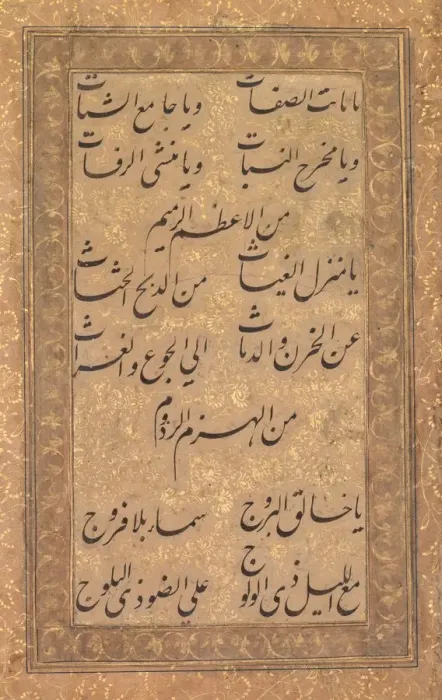 یا ثابت الصفات ویا جامع الشتات
ویا مخرج النبات ویا منشی الرفات
من الاعظم الرمیم
یا منزل الغیاث من الدلج الحثاث
عن الحزن والدماث الی الجوع والغراث
من الهزم الرذوم
یا خالق البروج سما بلا فروج
مع اللیل ذی الولوج علی الضوء ذی البلوج